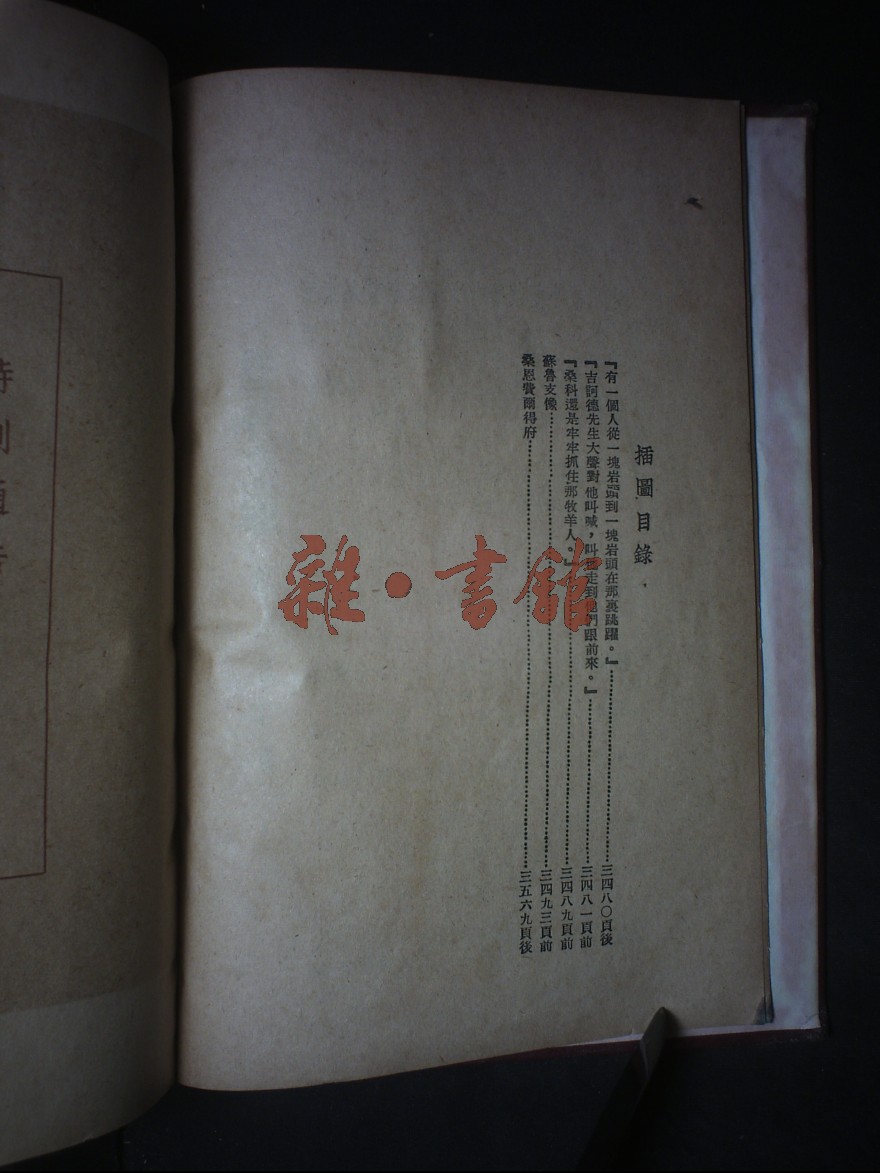 插圖目錄
『有一個人從一塊岩頭到一塊岩頭在那裏跳躍。』……三四八〇頁後
『吉訶德先生大聲對他叫喊，叫他走到他們跟前來。』……三四八一頁前
『桑科還是牢牢抓住那牧羊人。』……三四八九頁前
蘇魯支像……三四九三頁前
桑恩費爾得府……三五六九頁後
雜·書館